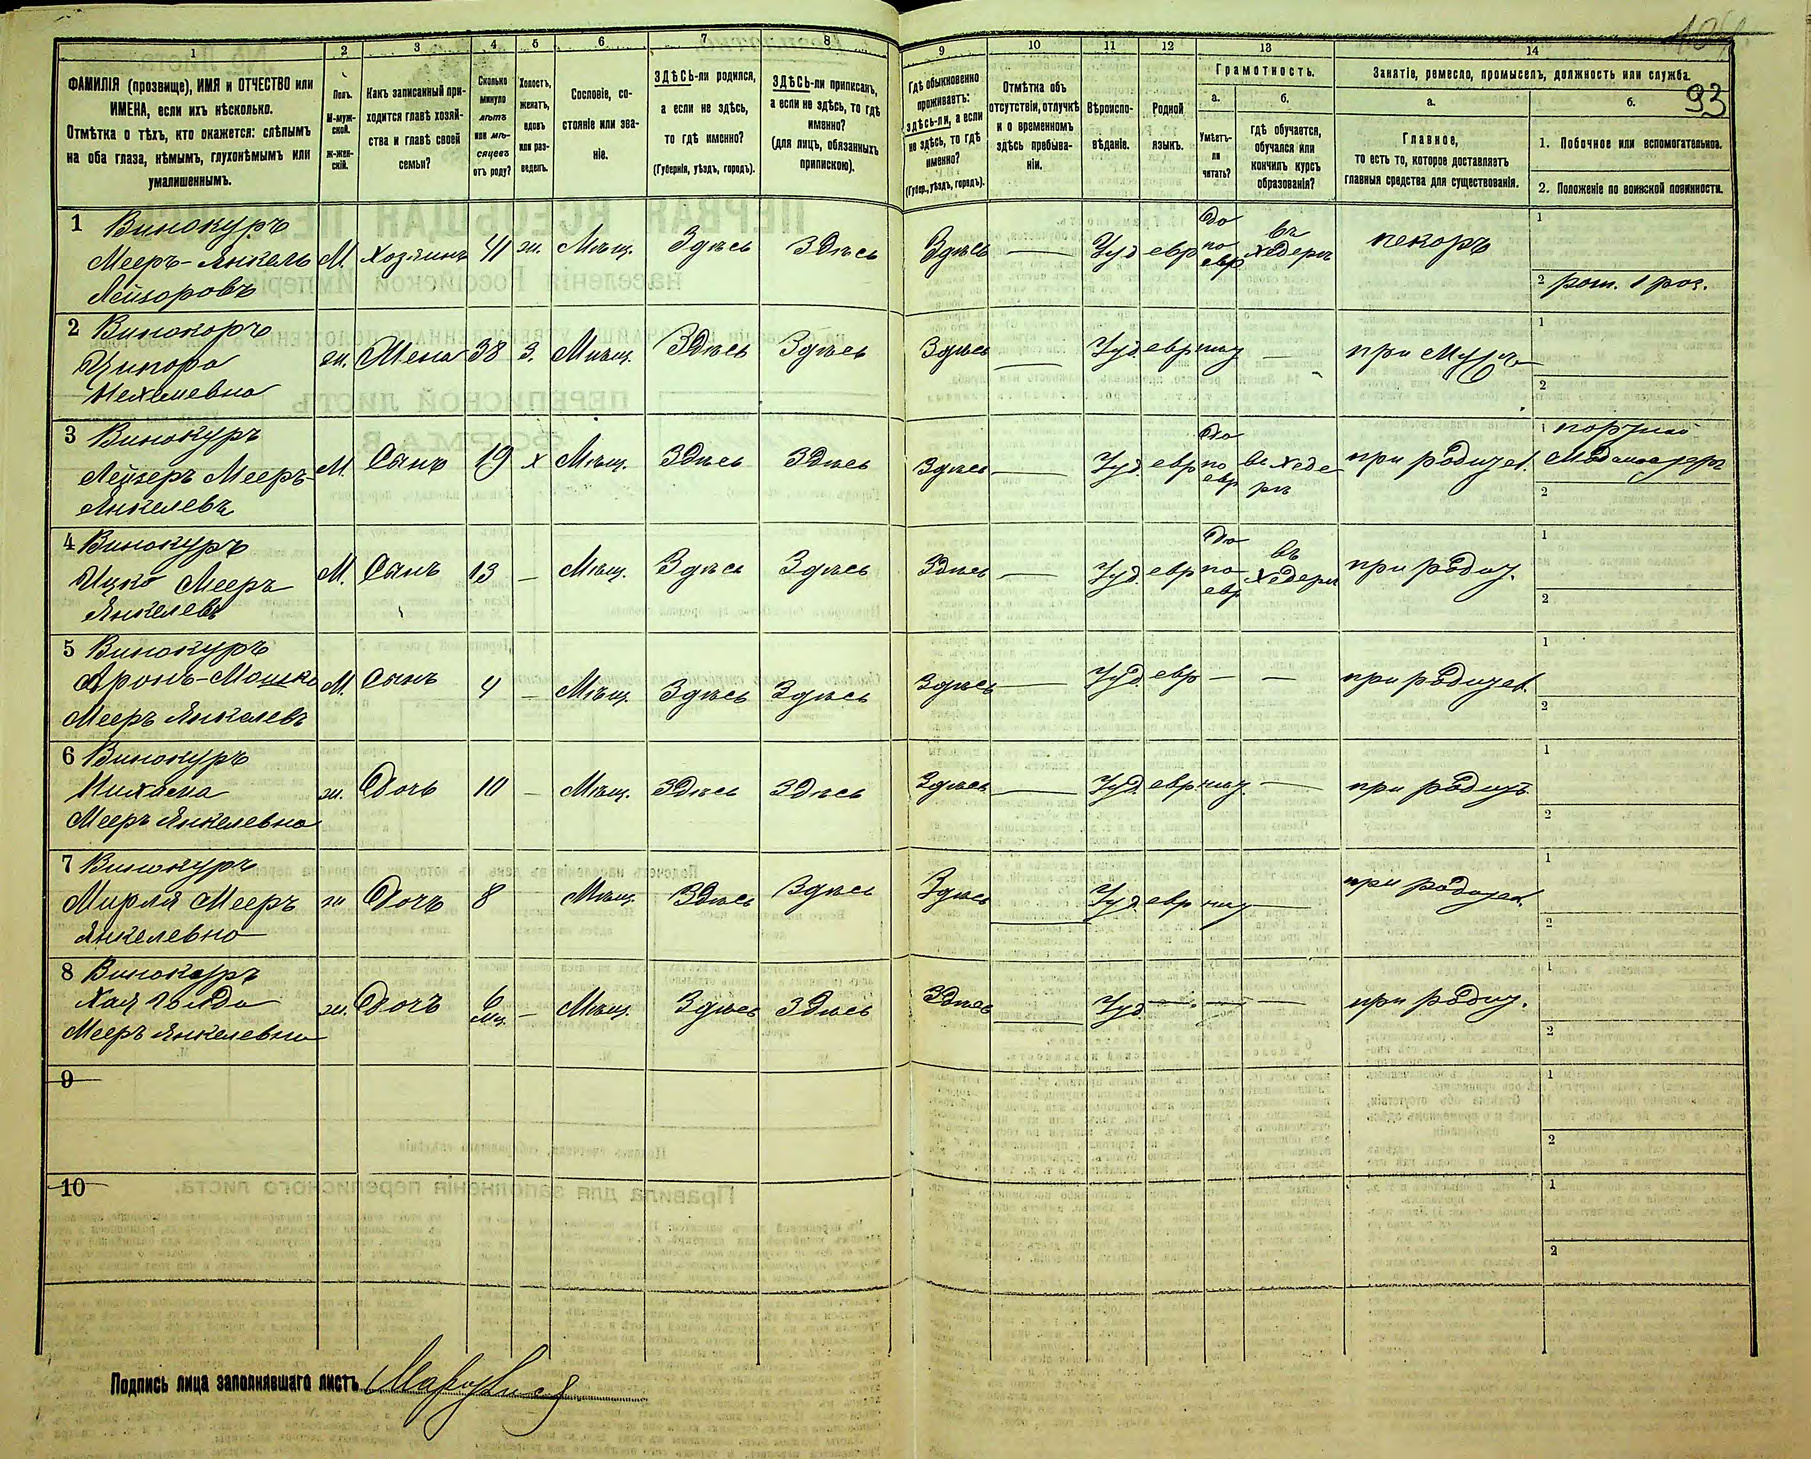 93
1 2 3 4 5 6 7 8 9 10 11 12 13 14
ФАМИЛІЯ (прозвище), ИМЯ и ОТЧЕСТВО или
ИМЕНА, если ихъ нѣсколько.
Отмѣтка о тѣхъ, кто окажется: слѣпымъ
на оба глаза, нѣмымъ, глухонѣмымъ или
умалишеннымъ.
Полъ.
М-муж-
ской.
Ж-жен-
скій.
Какъ записанный при-
ходится главѣ хозяй-
ства и главѣ своей
семьи?
Сколько
минуло
лѣтъ
или мѣ-
сяцевъ
отъ роду?
Холостъ,
женатъ,
вдовъ
или раз-
веденъ.
Сословіе, со-
стояніе или зва-
ніе.
ЗДѢСЬ-ли родился,
а если не здѣсь,
то гдѣ именно?
(Губернія, уѣздъ, городъ).
ЗДѢСЬ-ли приписанъ,
а если не здѣсь, то гдѣ
именно?
(для лицъ, обязанныхъ
припискою).
Гдѣ обыкновенно
проживаетъ:
здѣсь-ли, а если
не здѣсь, то гдѣ
именно?
(Губер., уѣздъ, городъ).
Отмѣтка объ
отсутствіи, отлучкѣ
и о временномъ
здѣсь пребыва-
ніи.
Вѣроиспо-
вѣданіе.
Родной
языкъ.
Грамотность.
а.
Умѣетъ-
ли
читать?
б.
гдѣ обучается,
обучался или
кончилъ курсъ
образованія?
Занятіе, ремесло, промыселъ, должность или служба.
а.
Главное,
то есть то, которое доставляетъ
главныя средства для существованія.
б.
1. Побочное или вспомогательное.
2. Положеніе по воинской повинности.
1 Винокуръ
Мееръ-Янкель М. Хозяинъ 41 ж. Мѣщ. Здѣсь Здѣсь Здѣсь — Іуд евр Да по евр въ хедерѣ пекоръ
Лейзоровъ
2 рат. 1 раз.
2 Винокоръ
Ципора ж. Жена 38 з. Мѣщ. Здѣсь Здѣсь Здѣсь — Іуд. евр — при мужѣ
Нехемевна
3 Винокуръ
Лейзеръ Мееръ- М. Сынъ 19 х Мѣщ. Здѣсь Здѣсь Здѣсь — Іуд. евр Да по евр въ хедерѣ при родител.
Янкелевъ
1 портной
2
4 Винокуръ
Ицко Мееръ М. Сынъ 13 — Мѣщ. Здѣсь Здѣсь Здѣсь — Іуд. евр Да по евр въ хедерѣ при родит.
Янкелевъ
5 Винокуръ
Аронъ-Мошко М. Сынъ 4 — Мѣщ. Здѣсь Здѣсь Здѣсь — Іуд. евр — — при родител.
Мееръ Янкелевъ
6 Винокуръ
ж. Дочь 10 — Мѣщ. Здѣсь Здѣсь Здѣсь — Іуд. евр — при родит
Мееръ Янкелевна
7 Винокуръ
Мирля Мееръ ж Дочь 8 Мѣщ. Здѣсь Здѣсь Здѣсь — Іуд. евр — при родител.
Янкелевна
8 Винокуръ
Хая Голда ж. Дочь 6 мц. — Мѣщ. Здѣсь Здѣсь Здѣсь — Іуд — — — при родит.
Мееръ Янкелевна
9
10
Подпись лица заполнявшаго листъ